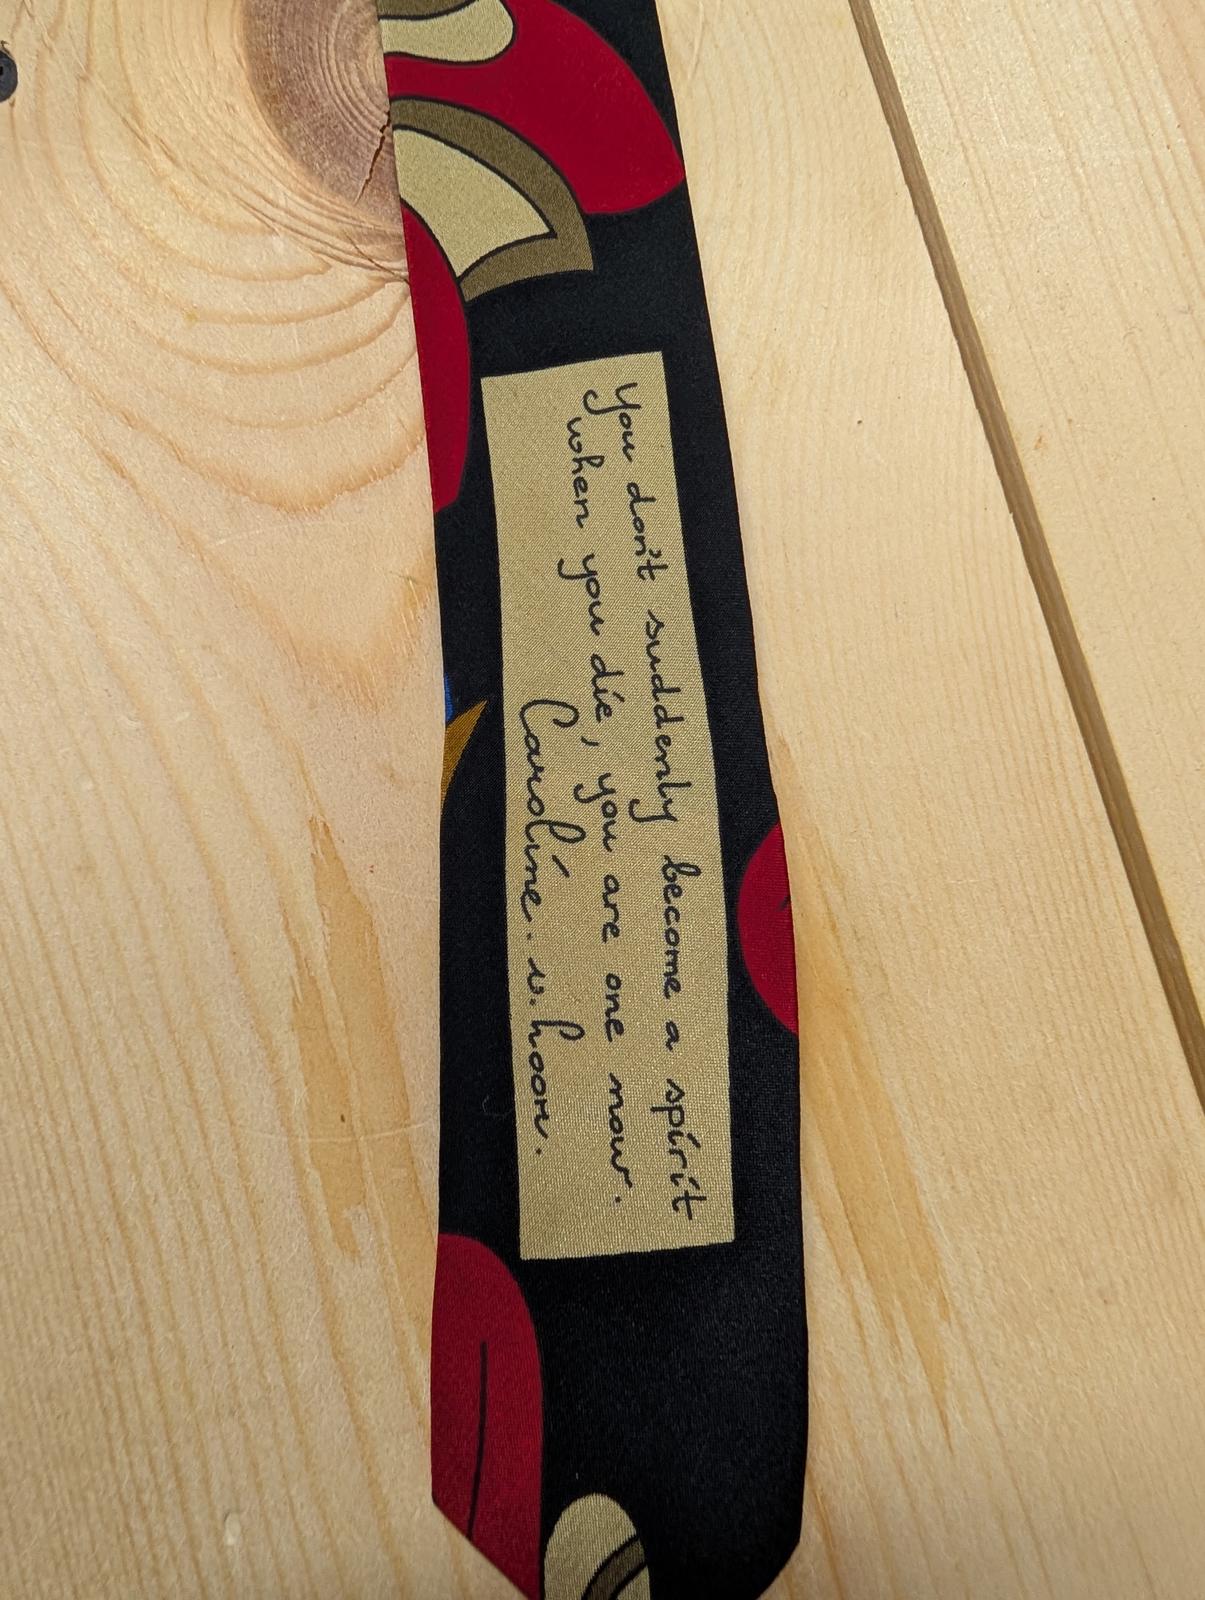 You don't suddenly become a spirit
when you die, you are one now.
Caroline. v. hoorn.